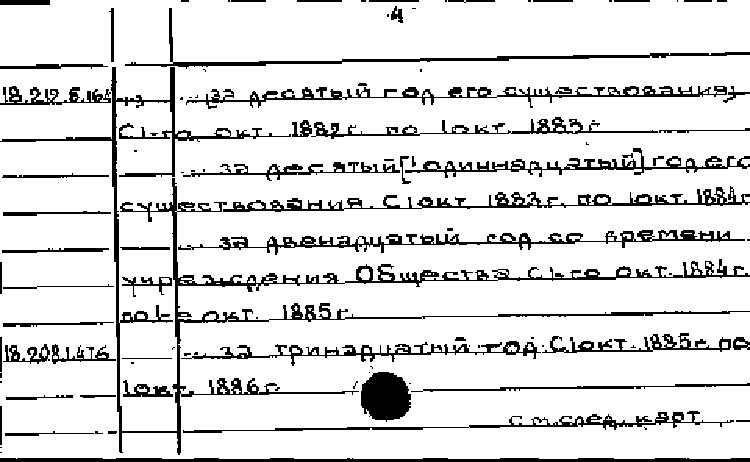 4
18.219.5.164 ... (за десятый год его существования)
С 1-го окт. 1882 г. по 1 окт. 1883 г.
... за десятый [!одиннадцатый] год его
существования. С 1 окт. 1883 г. по 1 окт. 1884 г.
... за двенадцатый год со времени
учреждения Общества. С 1-го окт. 1884 г.
по 1-е окт. 1885 г.
18.208.1.476 ... за тринадцатый год. С 1 окт. 1885 г. по
1 окт. 1886 г.
см. след. карт